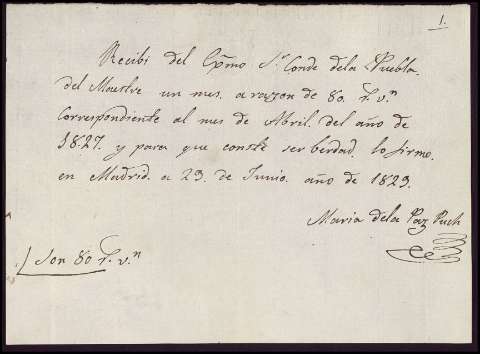 1.
Recibi del Exmo Sr Conde dela Puebla
del Maestre un mes. a razon de 80. r. vn
Correspondiente al mes de Abril. del año de
1827. y para que conste ser berdad. lo firmo.
en Madrid. a 23. de Junio. año de 1829.
Maria dela Paz Puch
Son 80 r. vn